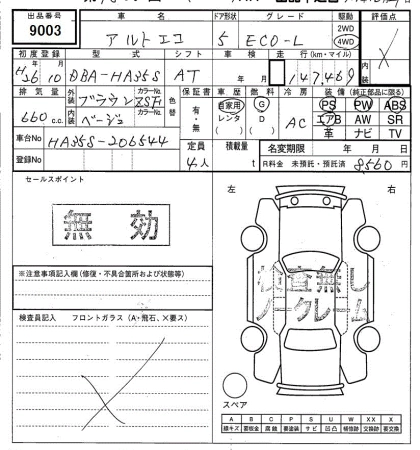 出品番号 車名 ドア形状 グレード 駆動 評価点
9003 アルトエコ 5 ECO-L 2WD 4WD
初度登録 型式 シフト 車検 走行(km・マイル) 内装
H26 10 DBA-HA35S AT 年 月 147,469
排気量 外装 ブラウン カラーNo. ZSF 色替 保証書 車歴 燃料 冷房 装備(純正部品に限る)
660 c.c. 内装 ベージュ カラーNo. 有・無 自家用 レンタ ( ) G D ( ) AC PS PW ABS
エアB AW SR
革 ナビ TV
車台No HA35S-206544 定員 4人 積載量 t 名変期限 年 月 日
登録No R料金 未預託・預託済 8560円
セールスポイント 左 右
無効
※注意事項記入欄(修復・不具合箇所および状態等)
検査無し
ノークレーム
検査員記入 フロントガラス(A・飛石、×要ス)
スペア
A B C P S U W XX X
線キズ 要板金 腐蝕 要塗装 サビ 凹凸 補修跡 交換跡 要交換